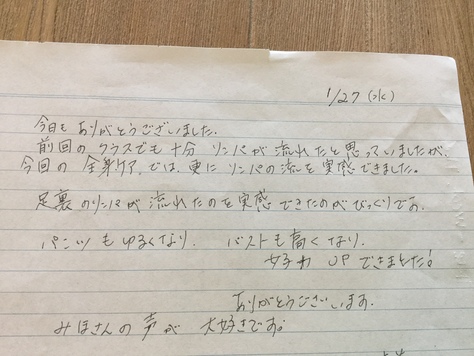 1/27 (水)
今日も ありがとうございました.
前回の クラスでも 十分 リンパが 流れたと思っていましたが.
今回の 全身ケア では, 更に リンパの流を 実感できました。
足裏のリンパが 流れたのを 実感 できたのが びっくりです.
パンツも ゆるくなり. バストも高くなり.
女子力 UP できました!
ありがとうございます.
みほさんの 声が 大好きです。